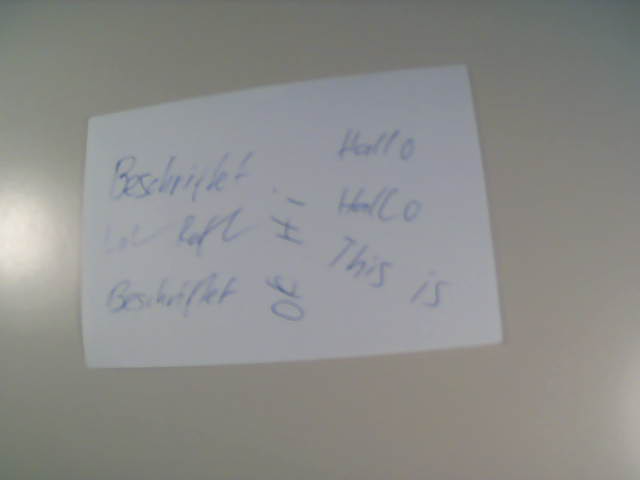 Beschriftet
Beschriftet
Hi
OK
Hallo
Hallo
This is